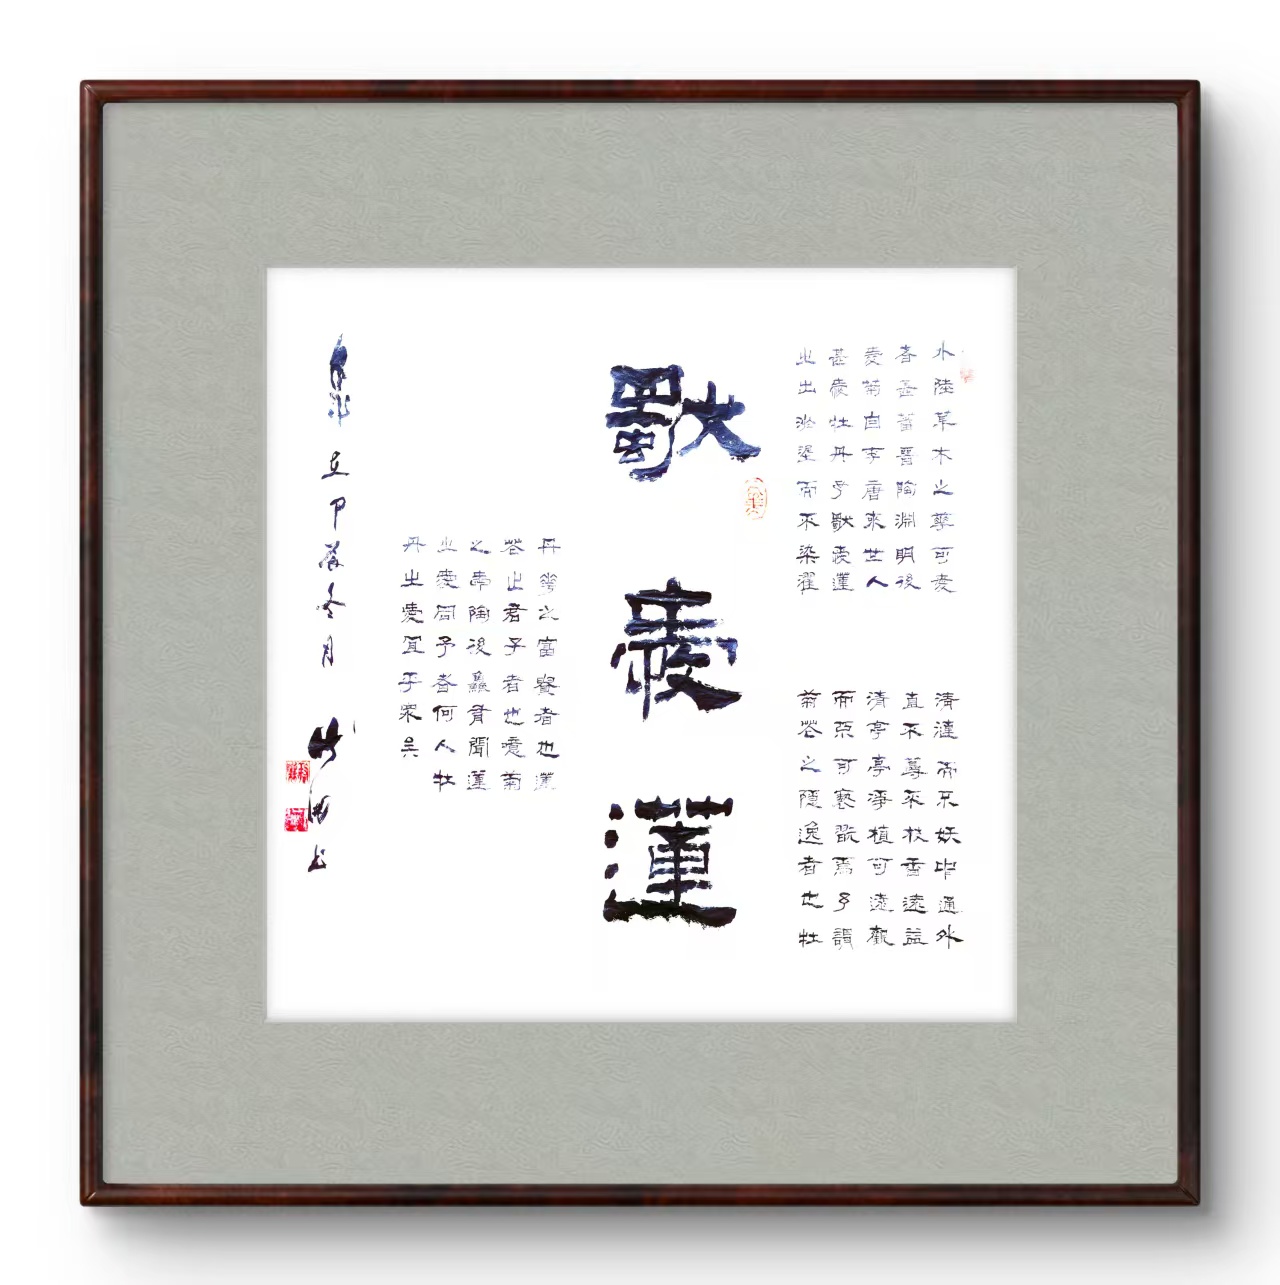 水陸草木之華可愛
者甚蕃晉陶淵明後
愛菊自李唐來世人
甚愛牡丹予獨愛蓮
之出淤泥而不染濯
清漣而不妖中通外
直不蔓不枝香遠益
清亭亭淨植可遠觀
而不可褻翫焉予謂
菊花之隱逸者也牡
獨愛蓮
丹華之富貴者也蓮
花之君子者也噫菊
之愛陶後鮮有聞蓮
之愛同予者何人牡
丹之愛宜乎衆矣
甲辰冬月